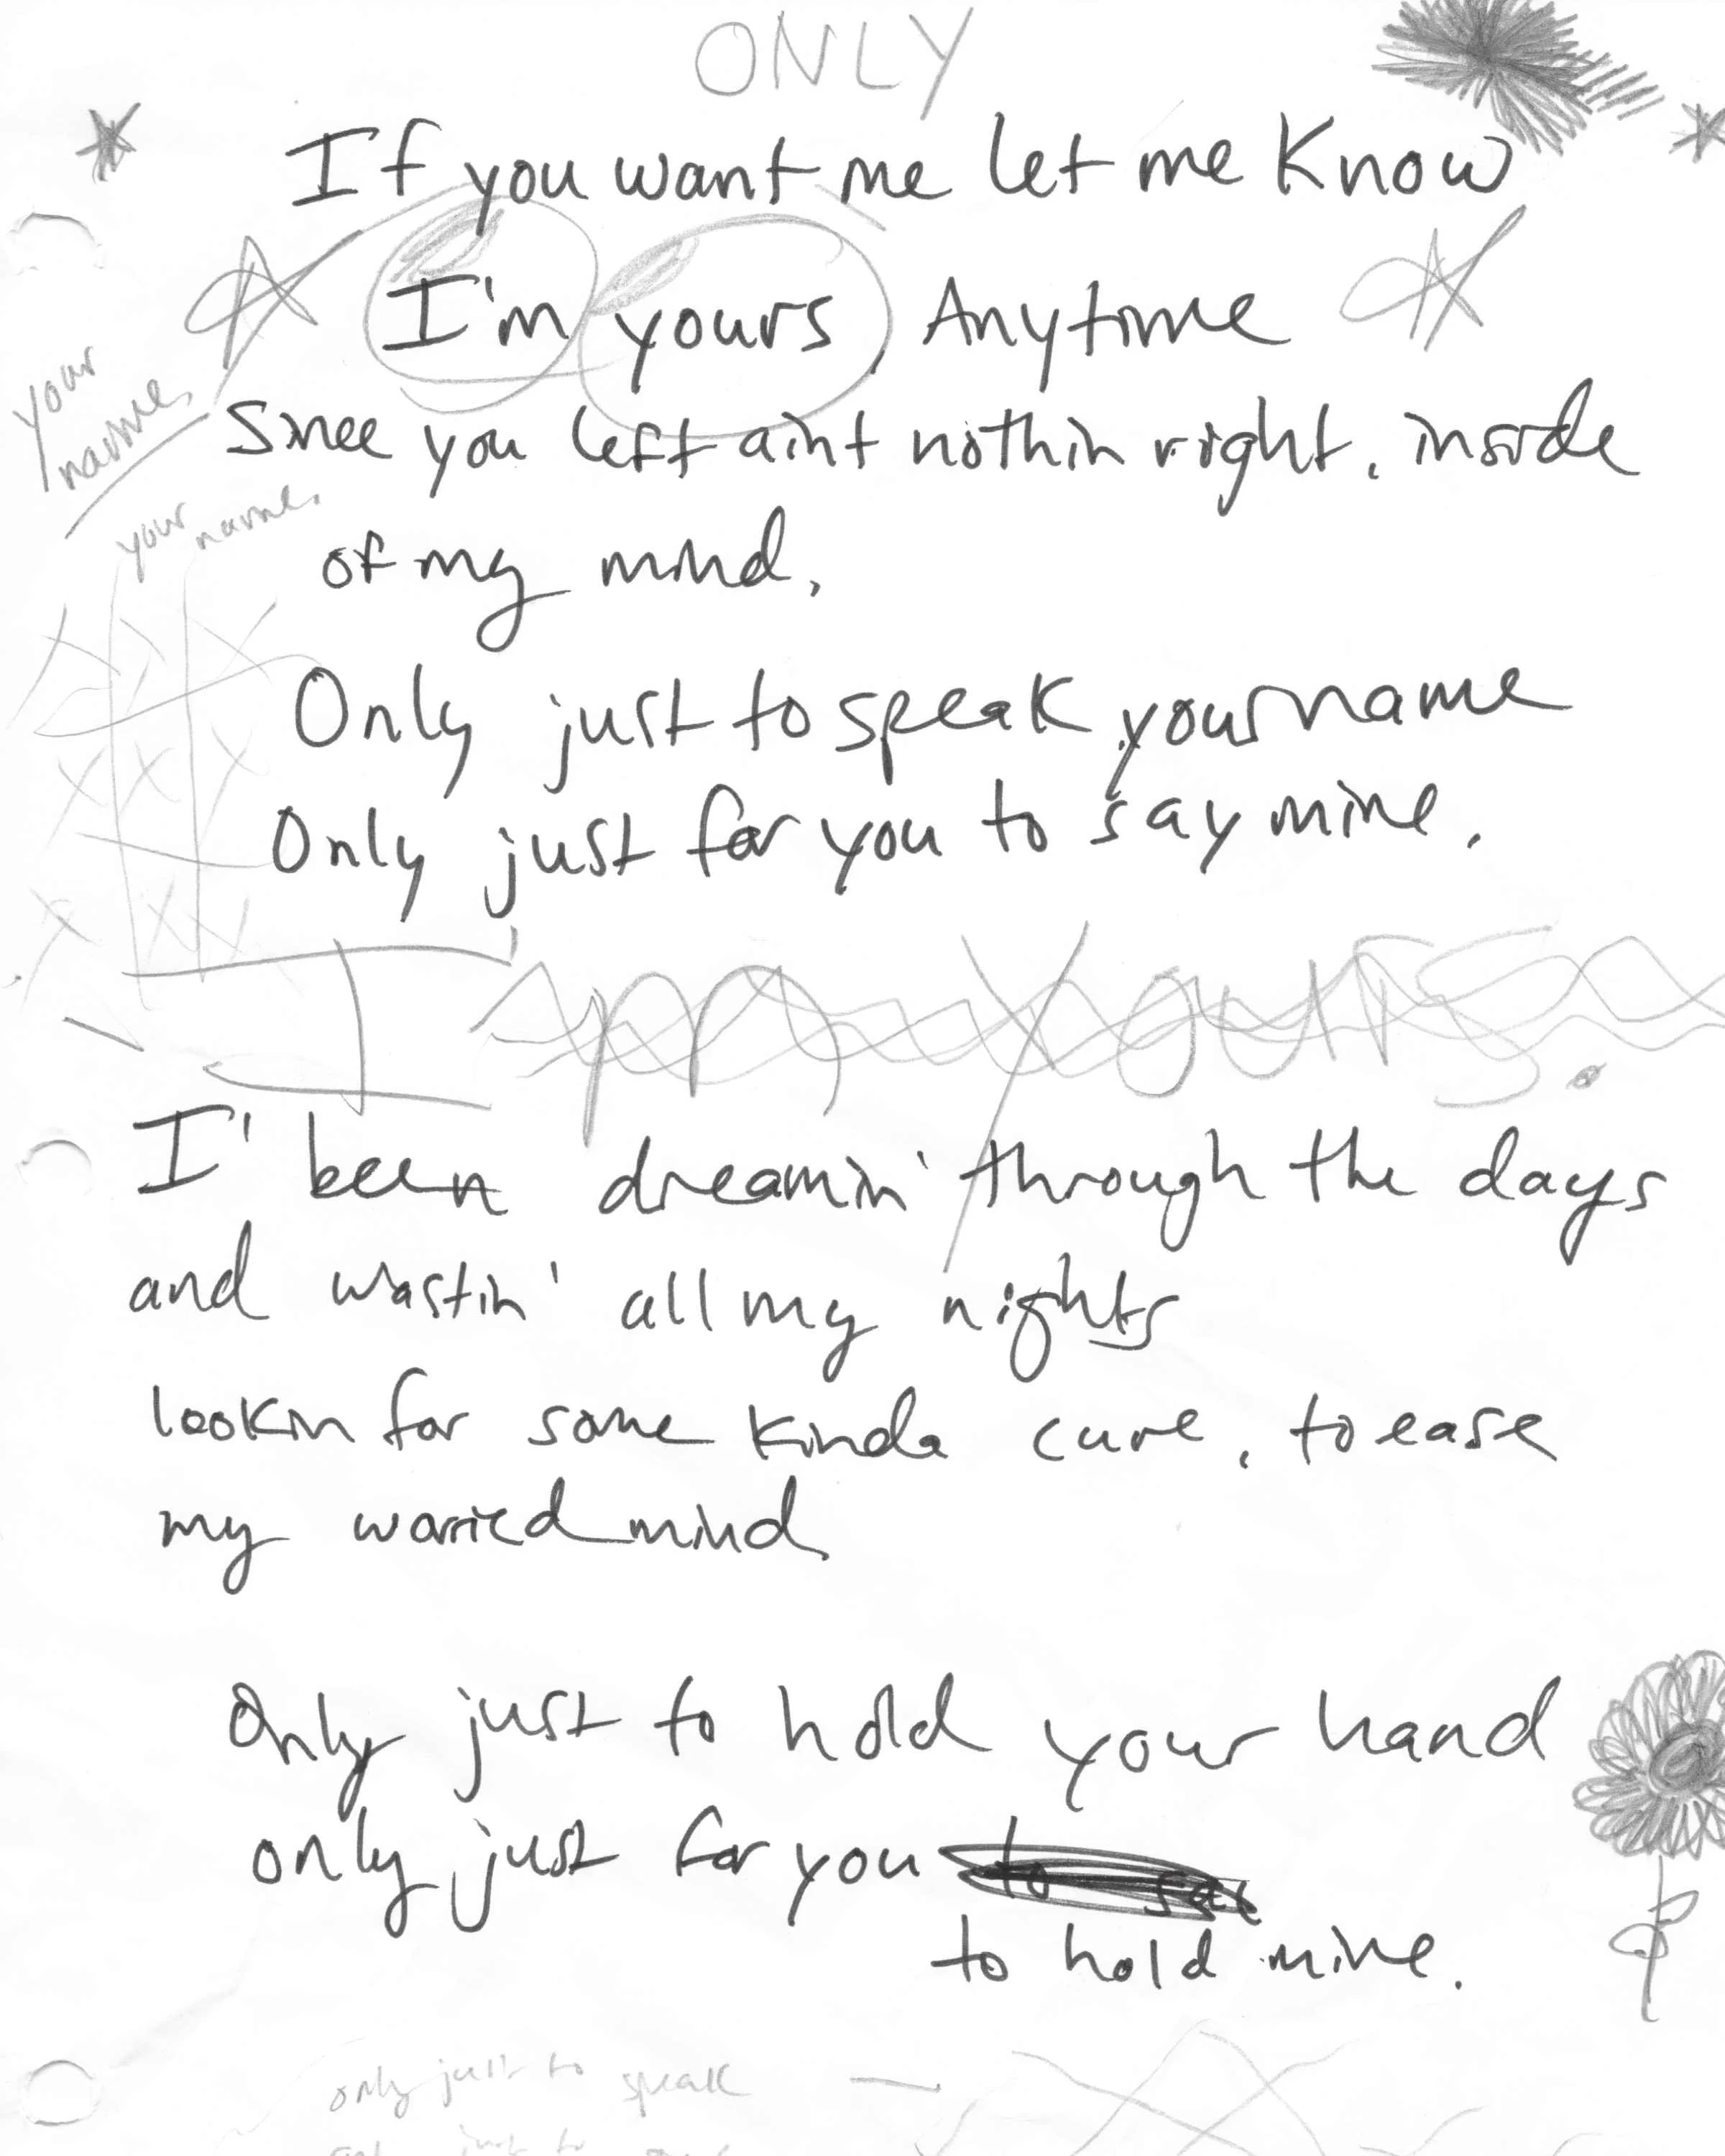 ONLY
If you want me let me Know
I'm yours, Anytime
your
name
Since you left aint nothin right, inside
your name.
of my mind,
Only just to speak your name
Only just for you to say mine.
I'm yours.
I' been dreamin' through the days
and wastin' all my nights
lookin for some kinda cure, to ease
my worried mind
Only just to hold your hand
only just for you
to hold mine.
only just to speak